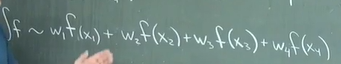 ∫f ~ w₁f(x₁) + w₂f(x₂) + w₃f(x₃) + w₄f(x₄)